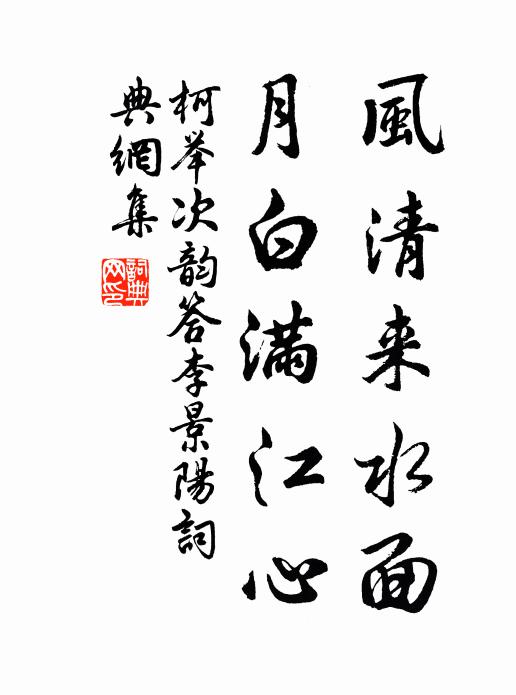 風清来水面
月白滿江心
柯举次韵答李景陽詞
典網集
詞典
网印